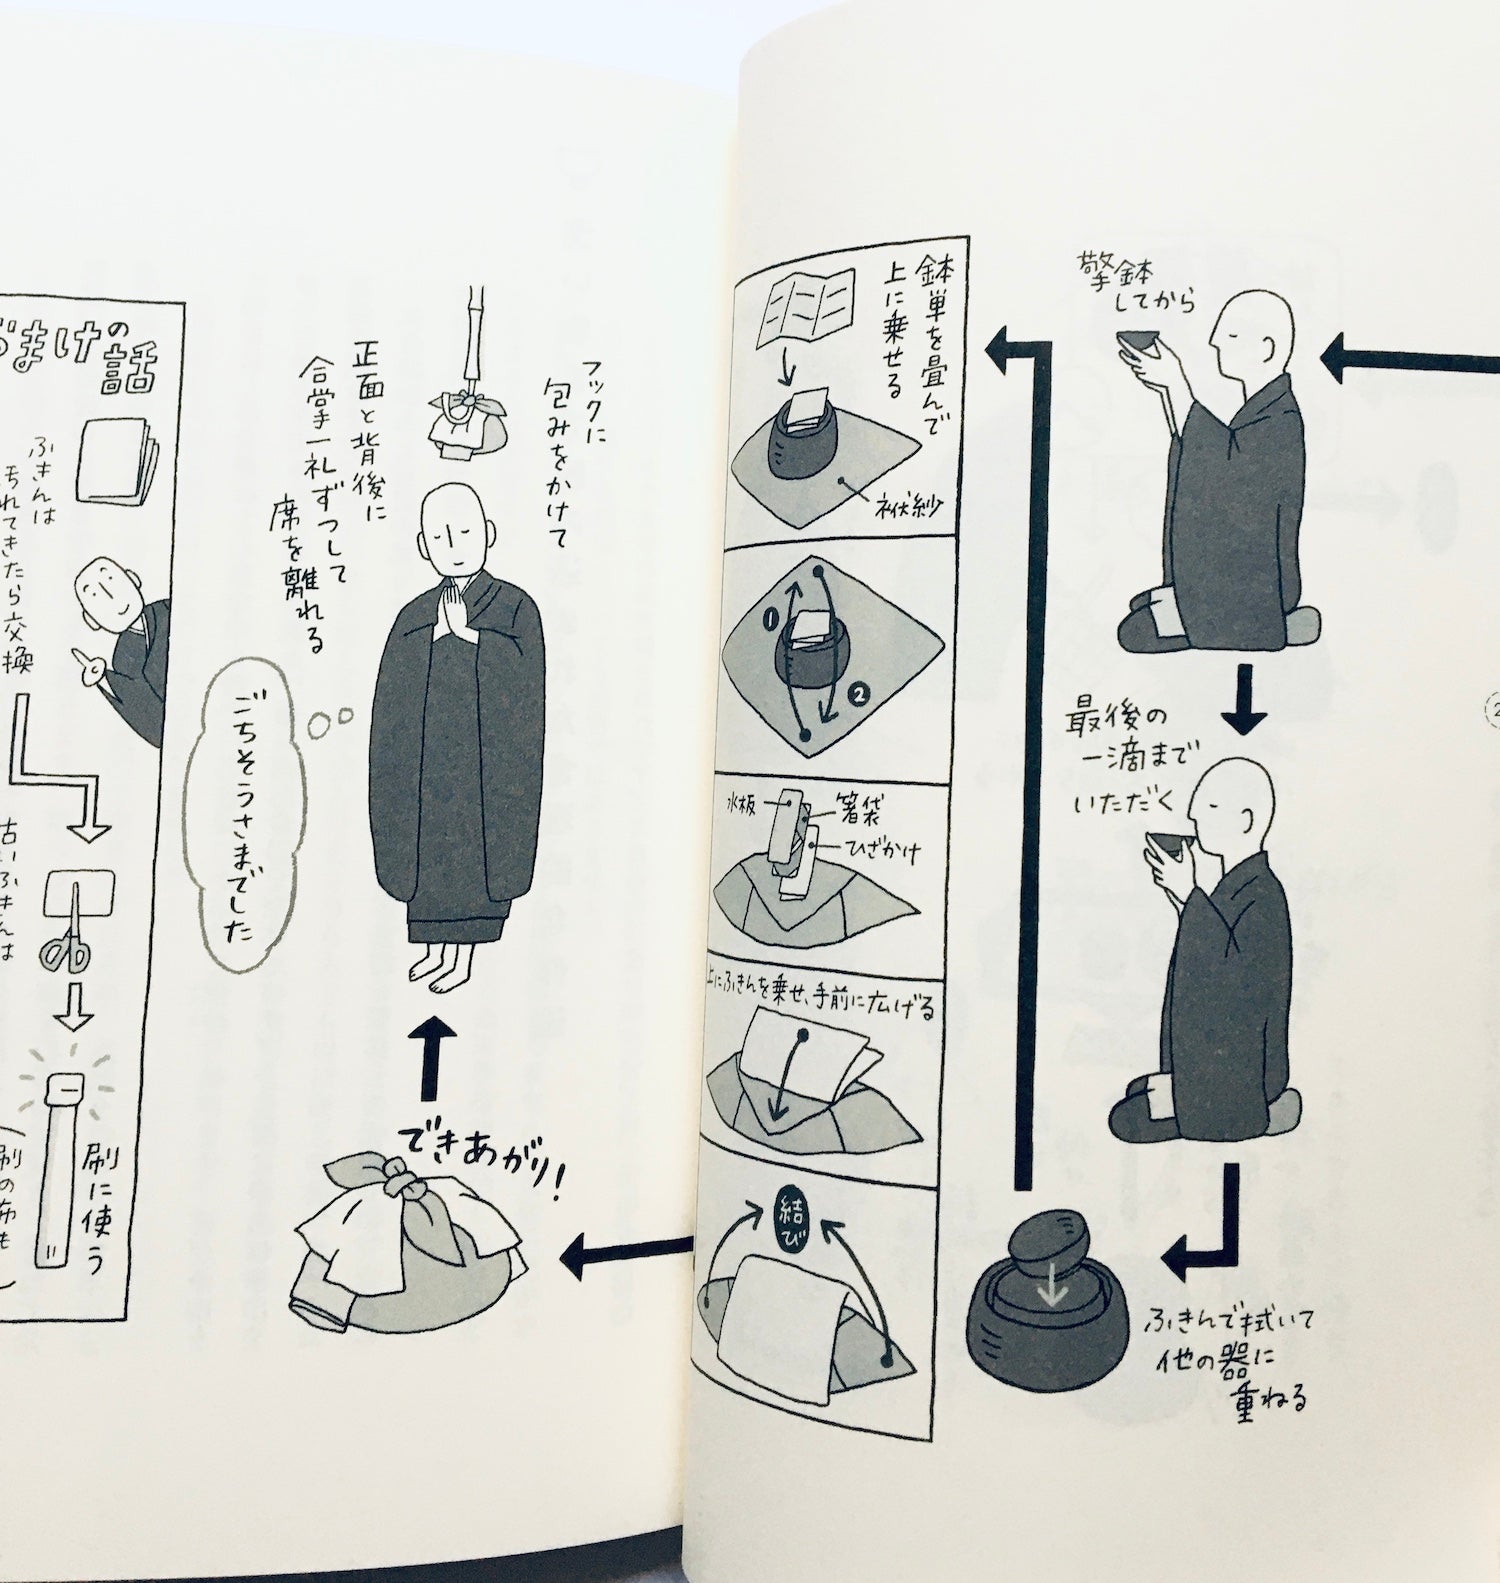 擎鉢
してから
最後の
一滴まで
いただく
ふきんで拭いて
他の器に
重ねる
鉢単を畳んで
上に乗せる
袱紗
1
2
水板
箸袋
ひざかけ
上にふきんを乗せ、手前に広げる
結び
できあがり!
フックに
包みをかけて
正面と背後に
合掌一礼ずつして
席を離れる
ごちそうさまでした
おまけの
話
ふきんは
汚れてきたら交換
古いふきんは
刷に使う
刷の布も